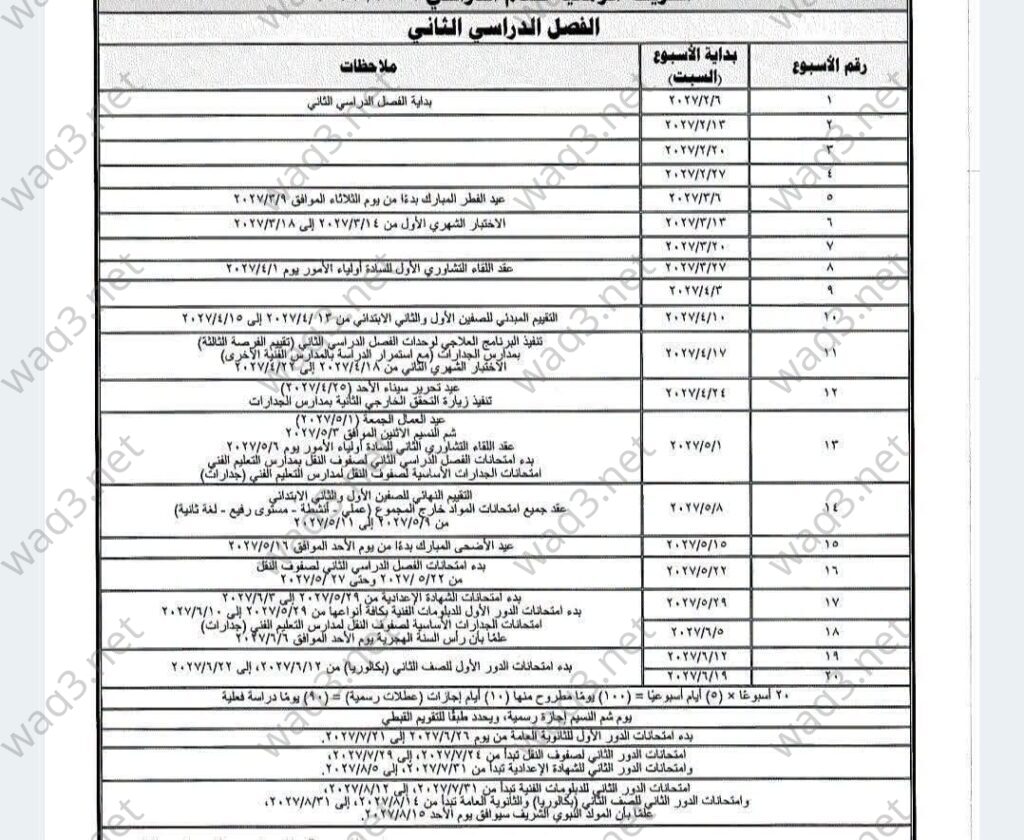 الفصل الدراسي الثاني
رقم الأسبوع
بداية الأسبوع
(السبت)
ملاحظات
١
٢٠٢٧/٢/٦
بداية الفصل الدراسي الثاني
٢
٢٠٢٧/٢/١٣
٣
٢٠٢٧/٢/٢٠
٤
٢٠٢٧/٢/٢٧
٥
٢٠٢٧/٣/٦
عيد الفطر المبارك بدءًا من يوم الثلاثاء الموافق ٢٠٢٧/٣/٩
٦
٢٠٢٧/٣/١٣
الاختبار الشهري الأول من ٢٠٢٧/٣/١٤ إلى ٢٠٢٧/٣/١٨
٧
٢٠٢٧/٣/٢٠
٨
٢٠٢٧/٣/٢٧
عقد اللقاء التشاوري الأول للسادة أولياء الأمور يوم ٢٠٢٧/٤/١
٩
٢٠٢٧/٤/٣
١٠
٢٠٢٧/٤/١٠
التقييم المبدئي للصفين الأول والثاني الابتدائي من ١٣ /٢٠٢٧/٤ إلى ٢٠٢٧/٤/١٥
١١
٢٠٢٧/٤/١٧
تنفيذ البرنامج العلاجي لوحدات الفصل الدراسي الثاني (تقييم الفرصة الثالثة)
بمدارس الجدارات (مع استمرار الدراسة بالمدارس الفنية الأخرى)
الاختبار الشهري الثاني من ٢٠٢٧/٤/١٨ إلى ٢٠٢٧/٤/٢٢
١٢
٢٠٢٧/٤/٢٤
عيد تحرير سيناء الأحد (٢٠٢٧/٤/٢٥)
تنفيذ زيارة التحقق الخارجي الثانية بمدارس الجدارات
١٣
٢٠٢٧/٥/١
عيد العمال الجمعة (٢٠٢٧/٥/١)
شم النسيم الاثنين الموافق ٢٠٢٧/٥/٣
عقد اللقاء التشاوري الثاني للسادة أولياء الأمور يوم ٢٠٢٧/٥/٦
بدء امتحانات الفصل الدراسي الثاني لصفوف النقل بمدارس التعليم الفني
امتحانات الجدارات الأساسية لصفوف النقل لمدارس التعليم الفني (جدارات)
١٤
٢٠٢٧/٥/٨
التقييم النهائي للصفين الأول والثاني الابتدائي
عقد جميع امتحانات المواد خارج المجموع (عملي - أنشطة - مستوى رفيع - لغة ثانية)
من ٢٠٢٧/٥/٩ إلى ٢٠٢٧/٥/١١
١٥
٢٠٢٧/٥/١٥
عيد الأضحى المبارك بدءًا من يوم الأحد الموافق ٢٠٢٧/٥/١٦
١٦
٢٠٢٧/٥/٢٢
بدء امتحانات الفصل الدراسي الثاني لصفوف النقل
من ٥/٢٢ /٢٠٢٧ وحتى ٢٧ /٢٠٢٧/٥
١٧
٢٠٢٧/٥/٢٩
بدء امتحانات الشهادة الإعدادية من ٢٠٢٧/٥/٢٩ إلى ٢٠٢٧/٦/٣
بدء امتحانات الدور الأول للدبلومات الفنية بكافة أنواعها من ٢٠٢٧/٥/٢٩ إلى ٢٠٢٧/٦/١٠
امتحانات الجدارات الأساسية لصفوف النقل لمدارس التعليم الفني (جدارات)
علمًا بأن رأس السنة الهجرية يوم الأحد الموافق ٢٠٢٧/٦/٦
١٨
٢٠٢٧/٦/٥
١٩
٢٠٢٧/٦/١٢
بدء امتحانات الدور الأول للصف الثاني (بكالوريا) من ٢٠٢٧/٦/١٢، إلى ٢٠٢٧/٦/٢٢
٢٠
٢٠٢٧/٦/١٩
٢٠ أسبوعًا × (٥) أيام أسبوعيًا = (١٠٠) يومًا مطروح منها (١٠) أيام إجازات (عطلات رسمية) = (٩٠) يومًا دراسة فعلية
يوم شم النسيم إجازة رسمية، ويحدد طبقًا للتقويم القبطي
بدء امتحانات الدور الأول للثانوية العامة من يوم ٢٠٢٧/٦/٢٦ إلى ٢٠٢٧/٧/٢١.
امتحانات الدور الثاني لصفوف النقل تبدأ من ٢٠٢٧/٧/٢٤، إلى ٢٠٢٧/٧/٢٩،
وامتحانات الدور الثاني للشهادة الإعدادية تبدأ من ٢٠٢٧/٧/٣١، إلى ٢٠٢٧/٨/٥.
امتحانات الدور الثاني للدبلومات الفنية تبدأ من ٢٠٢٧/٧/٣١، إلى ٢٠٢٧/٨/١٢،
وامتحانات الدور الثاني للصف الثاني (بكالوريا) والثانوية العامة تبدأ من ٢٠٢٧/٨/١٤، إلى ٢٠٢٧/٨/٣١،
علمًا بأن المولد النبوي الشريف سيوافق يوم الأحد ٢٠٢٧/٨/١٥.
waq3.net